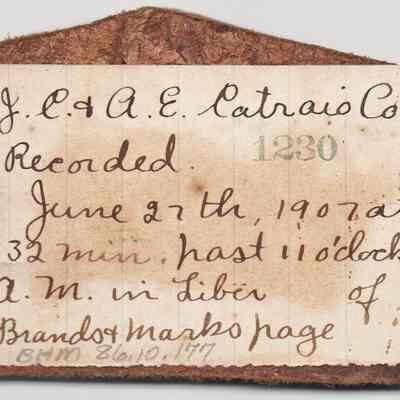 J. C. & A. E. Catrais Co
Recorded. 1230
June 27th, 1907 a
32 min. past 11 o'clock
A. M. in Liber of
Brands & Marks page
BHM 86.10.177